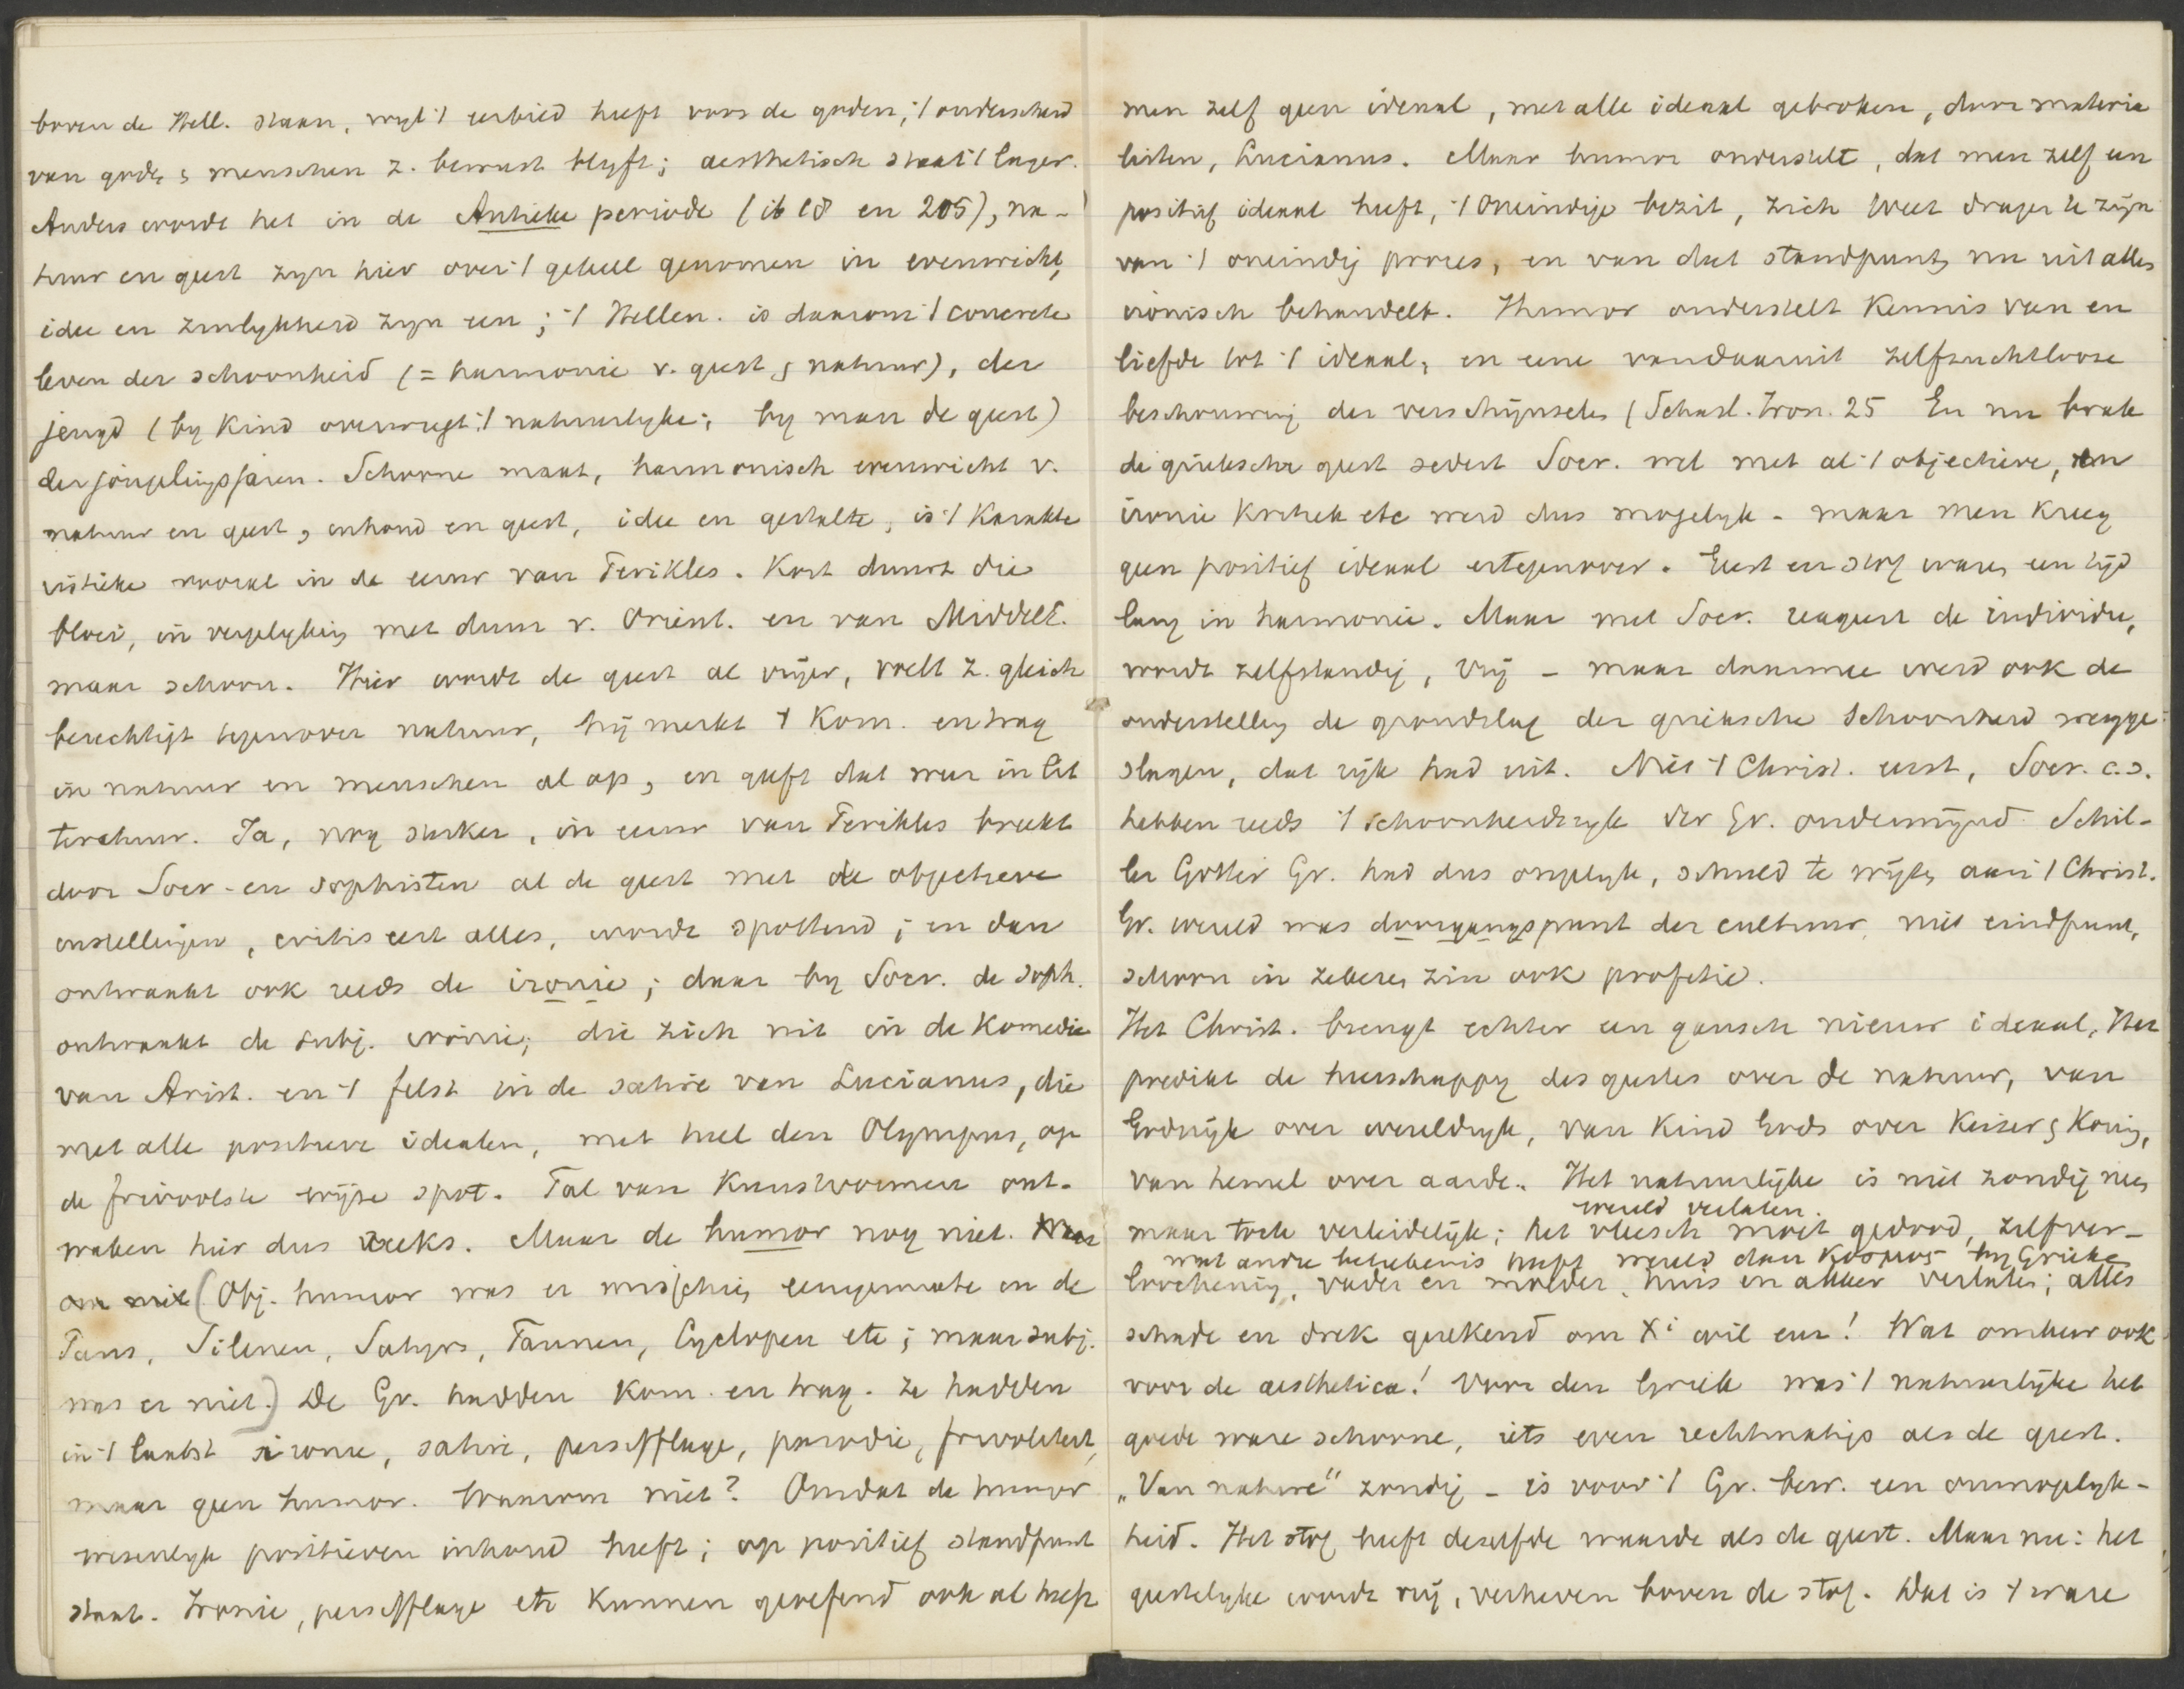 boven de Hell. staan, wyl 't eerbied heeft voor de goden, 't onderscheid
van goden & menschen z. bewust blyft; aesthetisch staat 't lager.
Anders wordt het in de Antieke periode (ib 18 en 205), na-
tuur en geest zyn hier over 't geheel genomen in evenwicht,
idee en zinlykheid zyn een; 't Hellen. is daarom 't concrete
leven der schoonheid (= harmonie v. geest & natuur), der
jeugd (by kind overweegt 't natuurlyke; by man de geest)
der jongelingsjaren. Schoone maat, harmonisch evenwicht v.
natuur en geest, inhoud en geest, idee en gestalte, is 't karakte
ristieke vooral in de eeuw van Perikles. Kort duurt die
bloei, in vergelyking met duur v. Orient. en van Middele.
maar schoon. Hier wordt de geest al vrijer, voelt z. gleich
berechtigt tegenover natuur, hij merkt 't kom. en trag
in natuur en menschen al op, en geeft dat weer in lit
teratuur. Ja, nog sterker, in eeuw van Perikles breekt
door Socr. en sophisten al de geest met de objectieve
instellingen, critiseert alles, wordt spottend; en dan
ontwaakt ook reeds de ironie; daar by Socr. de soph.
ontwaakt de subj. ironie; die zich uit in de Komedie
van Arist. en 't felst in de satire van Lucianus, die
met alle positieve idealen, met heel den Olympus, op
de frivoolste wijze spot. Tal van kunstvormen ont-
waken hier dus reeds. Maar de humor nog niet.
(Obj. humor was er misschien eenigermate in de
Pans, Silenen, Satyrs, Faunen, Cyclopen etc; maar subj.
was er niet.) De Gr. hadden kom. en trag. ze hadden
in 't laatst ironie, satire, persifflage, parodie, frivoliteit,
maar geen humor. Waarom niet? Omdat de humor
wezenlyk positieven inhoud heeft; op positief standpunt
staat. Ironie, persifflage etc kunnen geoefend ook al heeft
men zelf geen ideaal, met alle ideaal gebroken, door materia
listen, Lucianus. Maar humor onderstelt, dat men zelf een
positief ideaal heeft, 't oneindige bezit, zich weet drager te zijn
van 't oneindig proces, en van dat standpunt nu uit alles
ironisch behandelt. Humor onderstelt kennis van en
liefde tot 't ideaal, en eene vandaaruit zelfzuchtloose
beschouwing der verschijnselen (Schasl. Iron. 25 En nu brak
de grieksche geest sedert Socr. wel met al 't objectieve, en
ironie kritiek etc werd dus mogelyk - maar men kreeg
geen positief ideaal ertegenover. Geest en stof waren een tijd
lang in harmonie. Maar met Socr. reageert de individu,
wordt zelfstandig, vrij - maar daarmee werd ook de
onderstelling de grondslag der grieksche schoonheid wegge-
slagen, dat rijk had uit. Niet 't Christ. eerst, Socr. c.s.
hebben reeds 't schoonheidsryk der Gr. ondermijnd. Schil-
ler Götter Gr. had dus ongelyk, schuld te wijten aan 't Christ.
Gr. wereld was doorgangspunt der cultuur, niet eindpunt,
schoon in zekeren zin ook profetie.
Het Christ. brengt echter een gansch nieuw ideaal, Het
predikt de heerschappy des geestes over de natuur, van
Godsrijk over wereldryk, van kind Gods over Keizer & Koning,
van hemel over aarde. Het natuurlijke is niet zondig nee,
wereld verlaten.
maar toch verleidelijk; het vleesch moet gedood, zelfver-
wat andre beteekenis heeft wereld dan Κοσμος by Grieken
loochening, vader en moeder, huis en akker verlaten; alles
schade en drek gerekend om Xi wil enz! Wat omkeer ook
voor de aesthetica! Voor den Griek was 't natuurlijke het
goede ware schoone, iets even rechtmatigs als de geest.
„Van nature" zondig - is voor 't Gr. bew. een onmogelyk-
heid. Het stof heeft dezelfde waarde als de geest. Maar nu: het
geestelyke wordt vrij, verheven boven de stof. Dat is 't ware